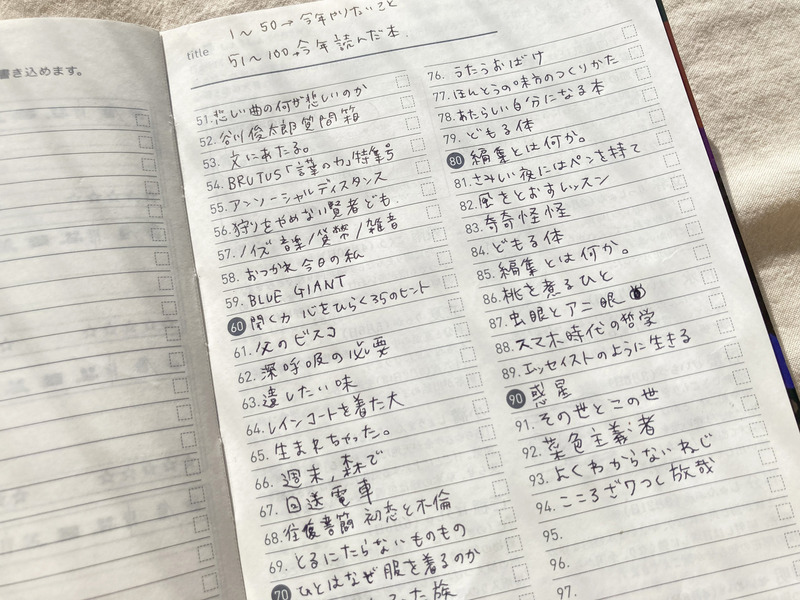 書き込めます。
title
1〜50→今年やりたいこと
51〜100→今年読んだ本.
51.悲しい曲の何が悲しいのか
52.谷川俊太郎質問箱
53.文にあたる。
54.BRUTUS「言葉の力」特集号
55.アンソーシャル ディスタンス
56.狩りをやめない賢者ども.
57.ノイズ 音楽/貨幣/雑音
58.おつかれ 今日の私
59.BLUE GIANT
60 聞く力 心をひらく35のヒント
61.父のビスコ
62.深呼吸の必要
63.遺したい味
64.レインコートを着た犬
65.生まれちゃった。
66.週末、森で
67.回送電車
68.往復書簡 初恋と不倫
69.とるにたらないものもの
70 ひとはなぜ服を着るのか
た族
76.うたうおばけ
77.ほんとうの味方のつくりかた
78.あたらしい自分になる本
79.どもる体
80 編集とは何か。
81.さみしい夜にはペンを持て
82.風をとおすレッスン
83.奇奇怪怪
84.どもる体
85.編集とは何か。
86.桃を煮るひと
87.虫眼とアニ眼
88.スマホ時代の哲学
89.エッセイストのように生きる
90 惑星
91.その世とこの世
92.菜色主義者
93.よくわからないねじ
94.こころざワつく放哉
95.
96.
97.